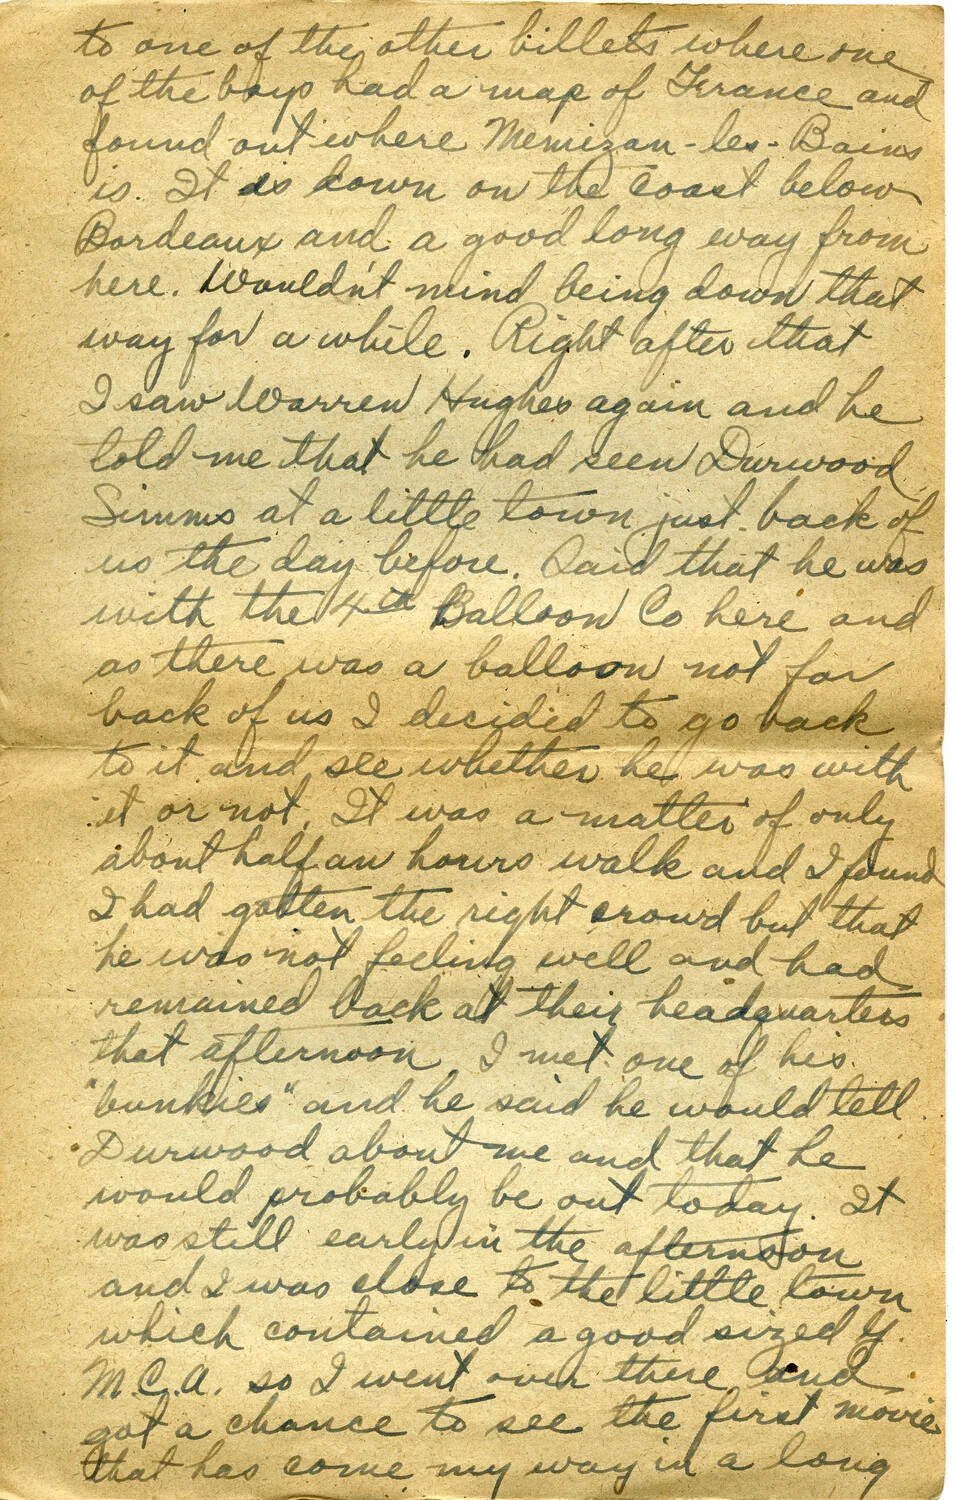 to one of the other billets where one
of the boys had a map of France and
found out where Memizan-les-Bains
is. It is down on the coast below
Bordeaux and a good long way from
here. Wouldn't mind being down that
way for a while. Right after that
I saw Warren Hughes again and he
told me that he had seen Durwood
Simms at a little town just back of
us the day before. Said that he was
with the 4th Balloon Co here and
as there was a balloon not far
back of us I decided to go back
to it and see whether he was with
it or not. It was a matter of only
about half an hours walk and I found
I had gotten the right crowd but that
he was not feeling well and had
remained back at their headquarters
that afternoon I met one of his
"bunkies" and he said he would tell
Durwood about me and that he
would probably be out today. It
was still early in the afternoon
and I was close to the little town
which contained a good sized Y.
M.C.A. so I went over there and
got a chance to see the first movie
that has come my way in a long